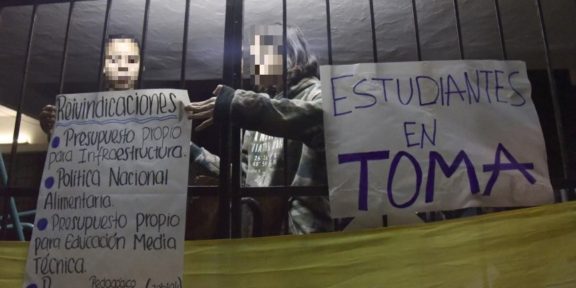 Reivindicaciones
Presupuesto propio
para Infraestructura.
Política Nacional
Alimentaria.
Presupuesto Propio
para Educación Media
Técnica.
Pedagógico
ESTUDIANTES
EN
TOMA